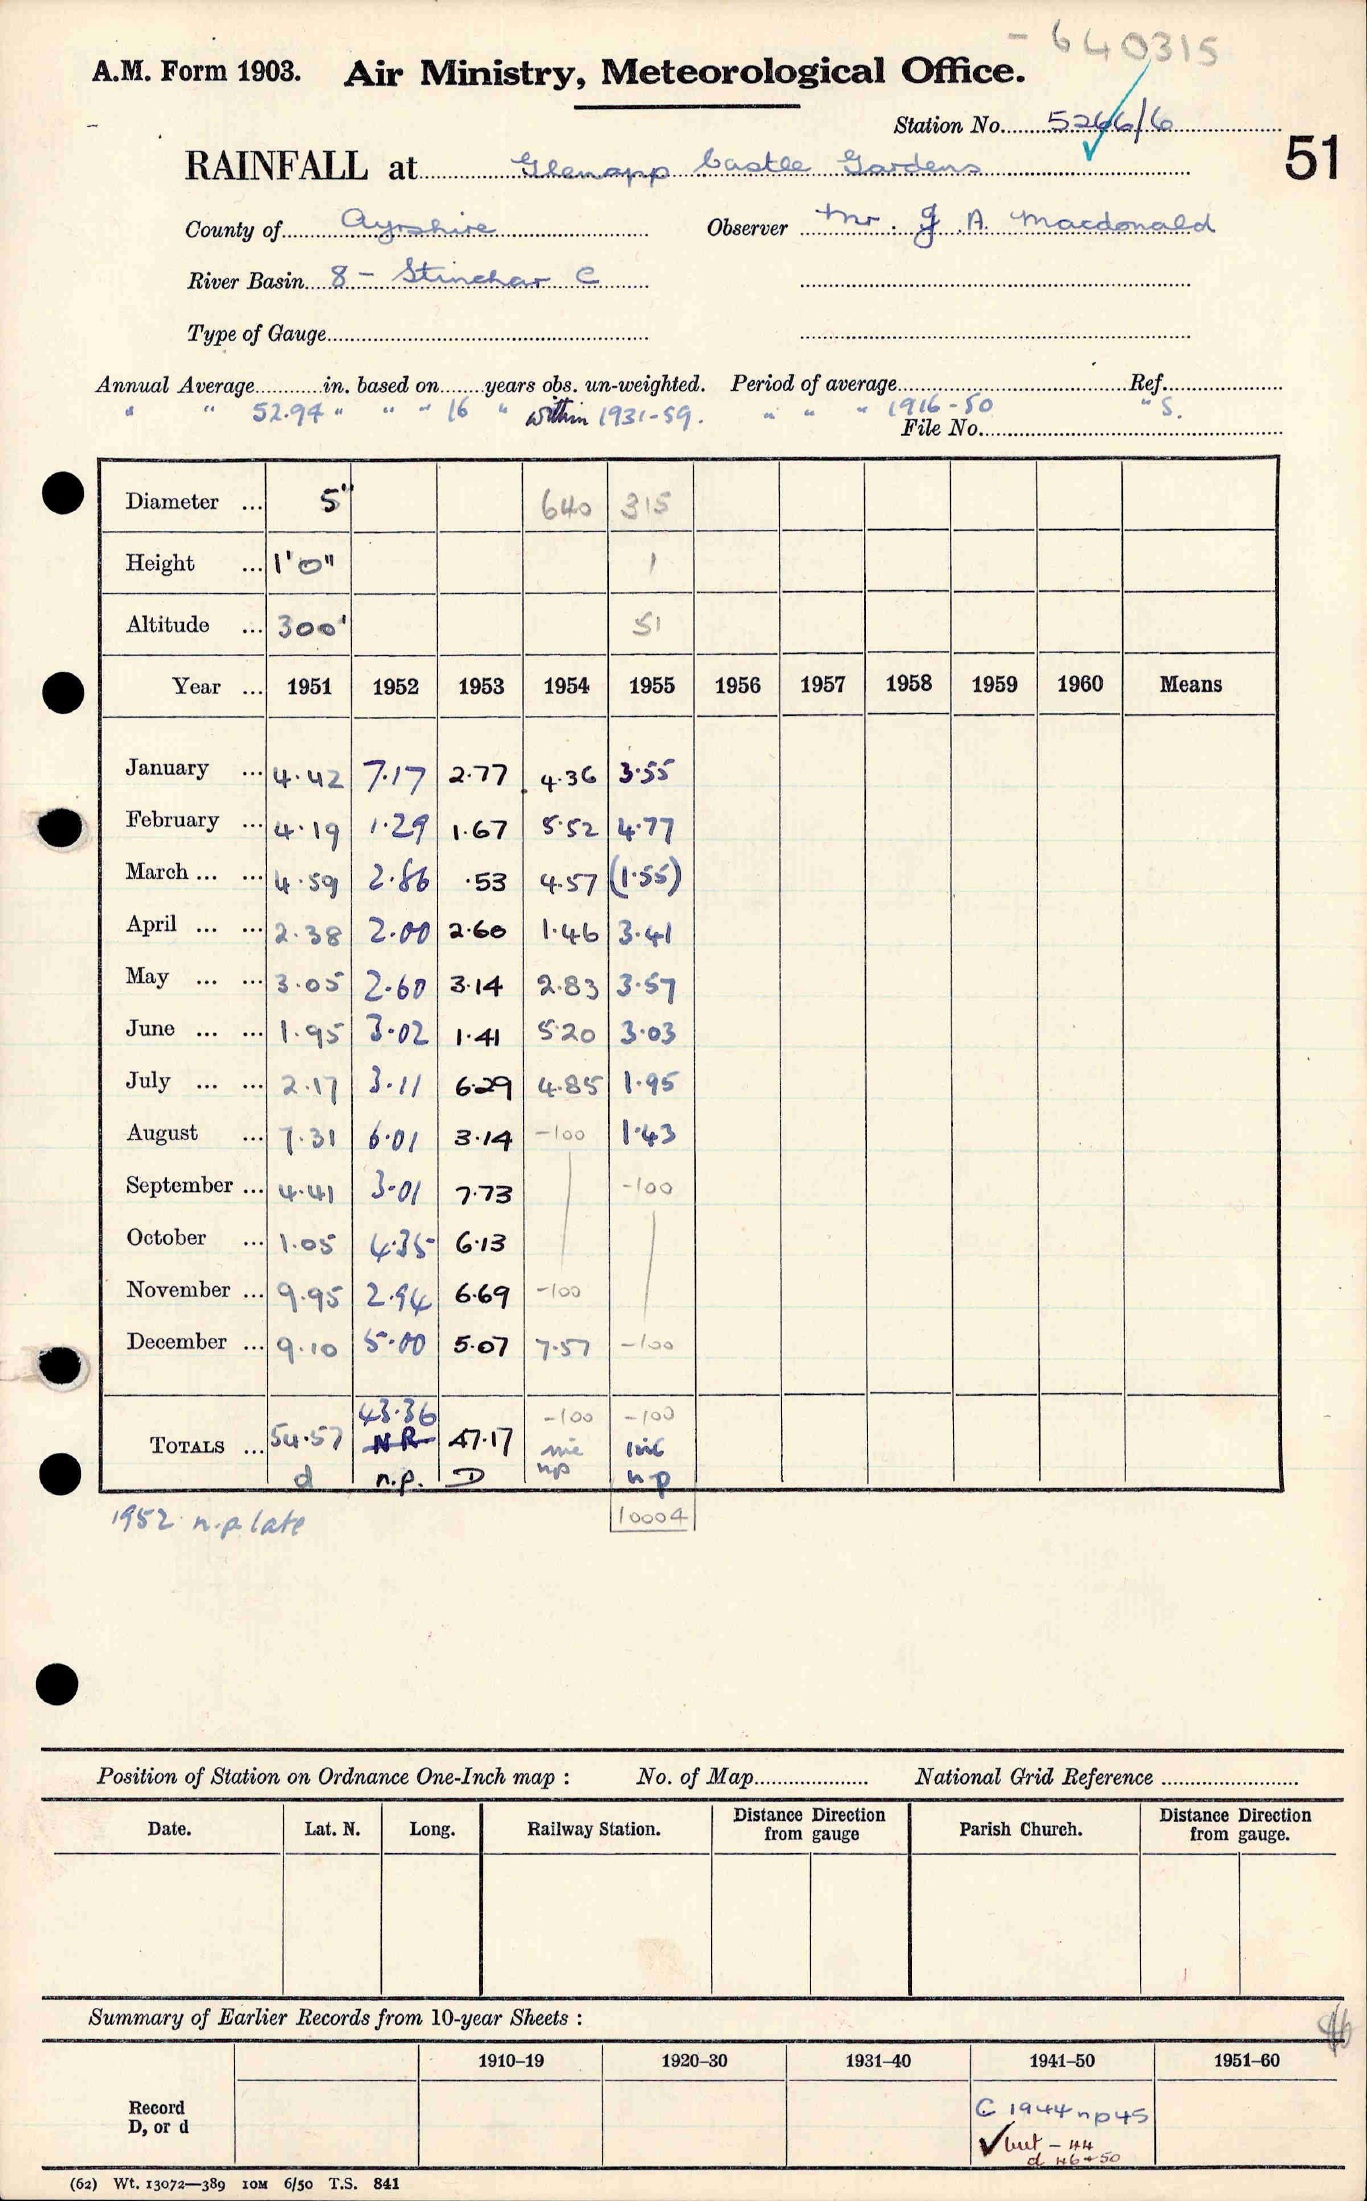 - 640315
A.M. Form 1903. Air Ministry, Meteorological Office.
Station No. 5266/6
51
RAINFALL at Glenapp Castle Gardens
County of Ayrshire Observer Mr. J. A. Macdonald
River Basin 8 - Stinchar C
Type of Gauge
Annual Average in. based on years obs. un-weighted. Period of average Ref.
" " 52.94 " " " 16 " within 1931-59. " " " 1916-50 " S.
File No.
Diameter ... 5" 640 315
Height ... 1'0" 1
Altitude ... 300' 51
Year ... 1951 1952 1953 1954 1955 1956 1957 1958 1959 1960 Means
January ... 4.42 7.17 2.77 4.36 3.55
February ... 4.19 1.29 1.67 5.52 4.77
March ... ... 4.59 2.86 .53 4.57 (1.55)
April ... ... 2.38 2.00 2.60 1.46 3.41
May ... ... 3.05 2.60 3.14 2.83 3.57
June ... ... 1.95 3.02 1.41 5.20 3.03
July ... ... 2.17 3.11 6.29 4.85 1.95
August ... 7.31 6.01 3.14 -100 1.43
September ... 4.41 3.01 7.73 -100
October ... 1.05 4.35 6.13
November ... 9.95 2.94 6.69 -100
December ... 9.10 5.00 5.07 7.57 -100
43.36 -100 -100
TOTALS ... 54.57 NR 47.17 inc inc
d n.p. D np np
1952 n.p. late 10004
Position of Station on Ordnance One-Inch map : No. of Map National Grid Reference
Date. Lat. N. Long. Railway Station. Distance from gauge Direction Parish Church. Distance from gauge. Direction
Summary of Earlier Records from 10-year Sheets :
1910–19 1920–30 1931–40 1941–50 1951–60
Record
D, or d
C 1944 np45
✓ but - 44
d 46-50
(62) Wt. 13072—389 10M 6/50 T.S. 841